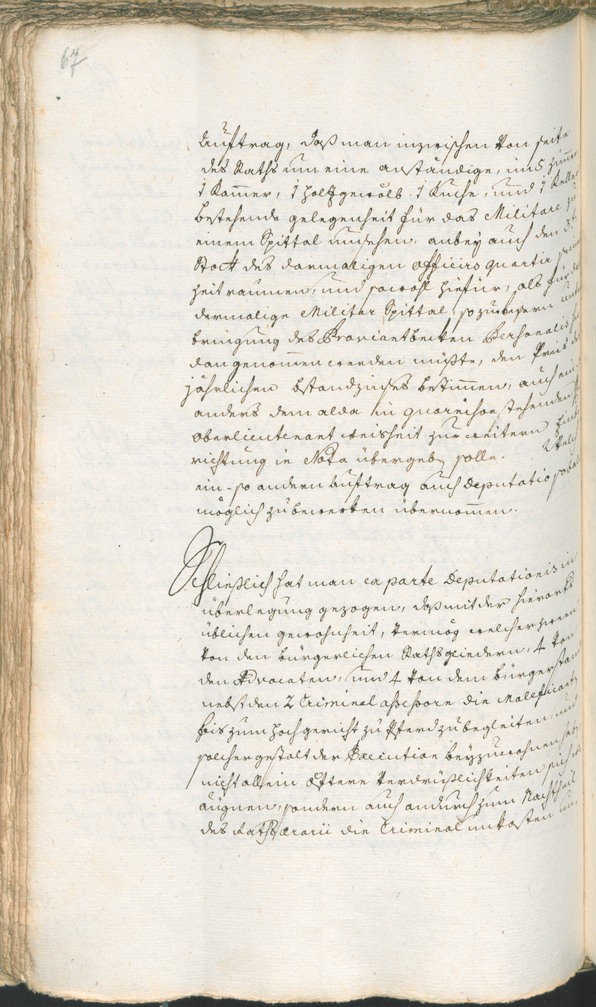 67
Auftrag, daß man inzwischen von seite
des Raths um eine anständige, in 5 Zimmer
1 Kammer, 1 Holtzgewölb 1 Kuche, und 1 Keller
bestehende gelegenheit für das Militare zu
einem Spittal umsehen, anbey auch den 3ten
Stock des darmaligen officiers quartir
zeit raumen, und sowohl hiefür, als für das
dermalige Militar Spittal, so zur
bringung des Proviantbecken Personalis
dan genommen werden müßte, den Preis des
jährlichen bstandzinses bestimmen, auch ein
anders dem alda in guarnison stehenden
Oberlieutenant weisheit zur weitern Ein
richtung in Nota übergeben solle. Welch
ein- so andern Auftrag auch Deputatio sobald
möglich zubewerken übernommen.
Schließlich hat man ex parte Deputationis in
überlegung gezogen, daß mit der hierorts
üblichen gewohnheit, vermög welcher
von den bürgerlichen Rathsgliedern, 4 von
den Advocaten, und 4 von dem bürgerstand
nebst den 2 Criminal assessore die Maleficanten
bis zum hochgericht zu Pferd zubegleiten, und
solchergestalt der Execution beyzuwohnen
nicht allein öftere verdrüßlichkeiten sich er
äugnen, sondern auch andurch zum Nachtheil
des Rathsærarii die Criminal unkosten